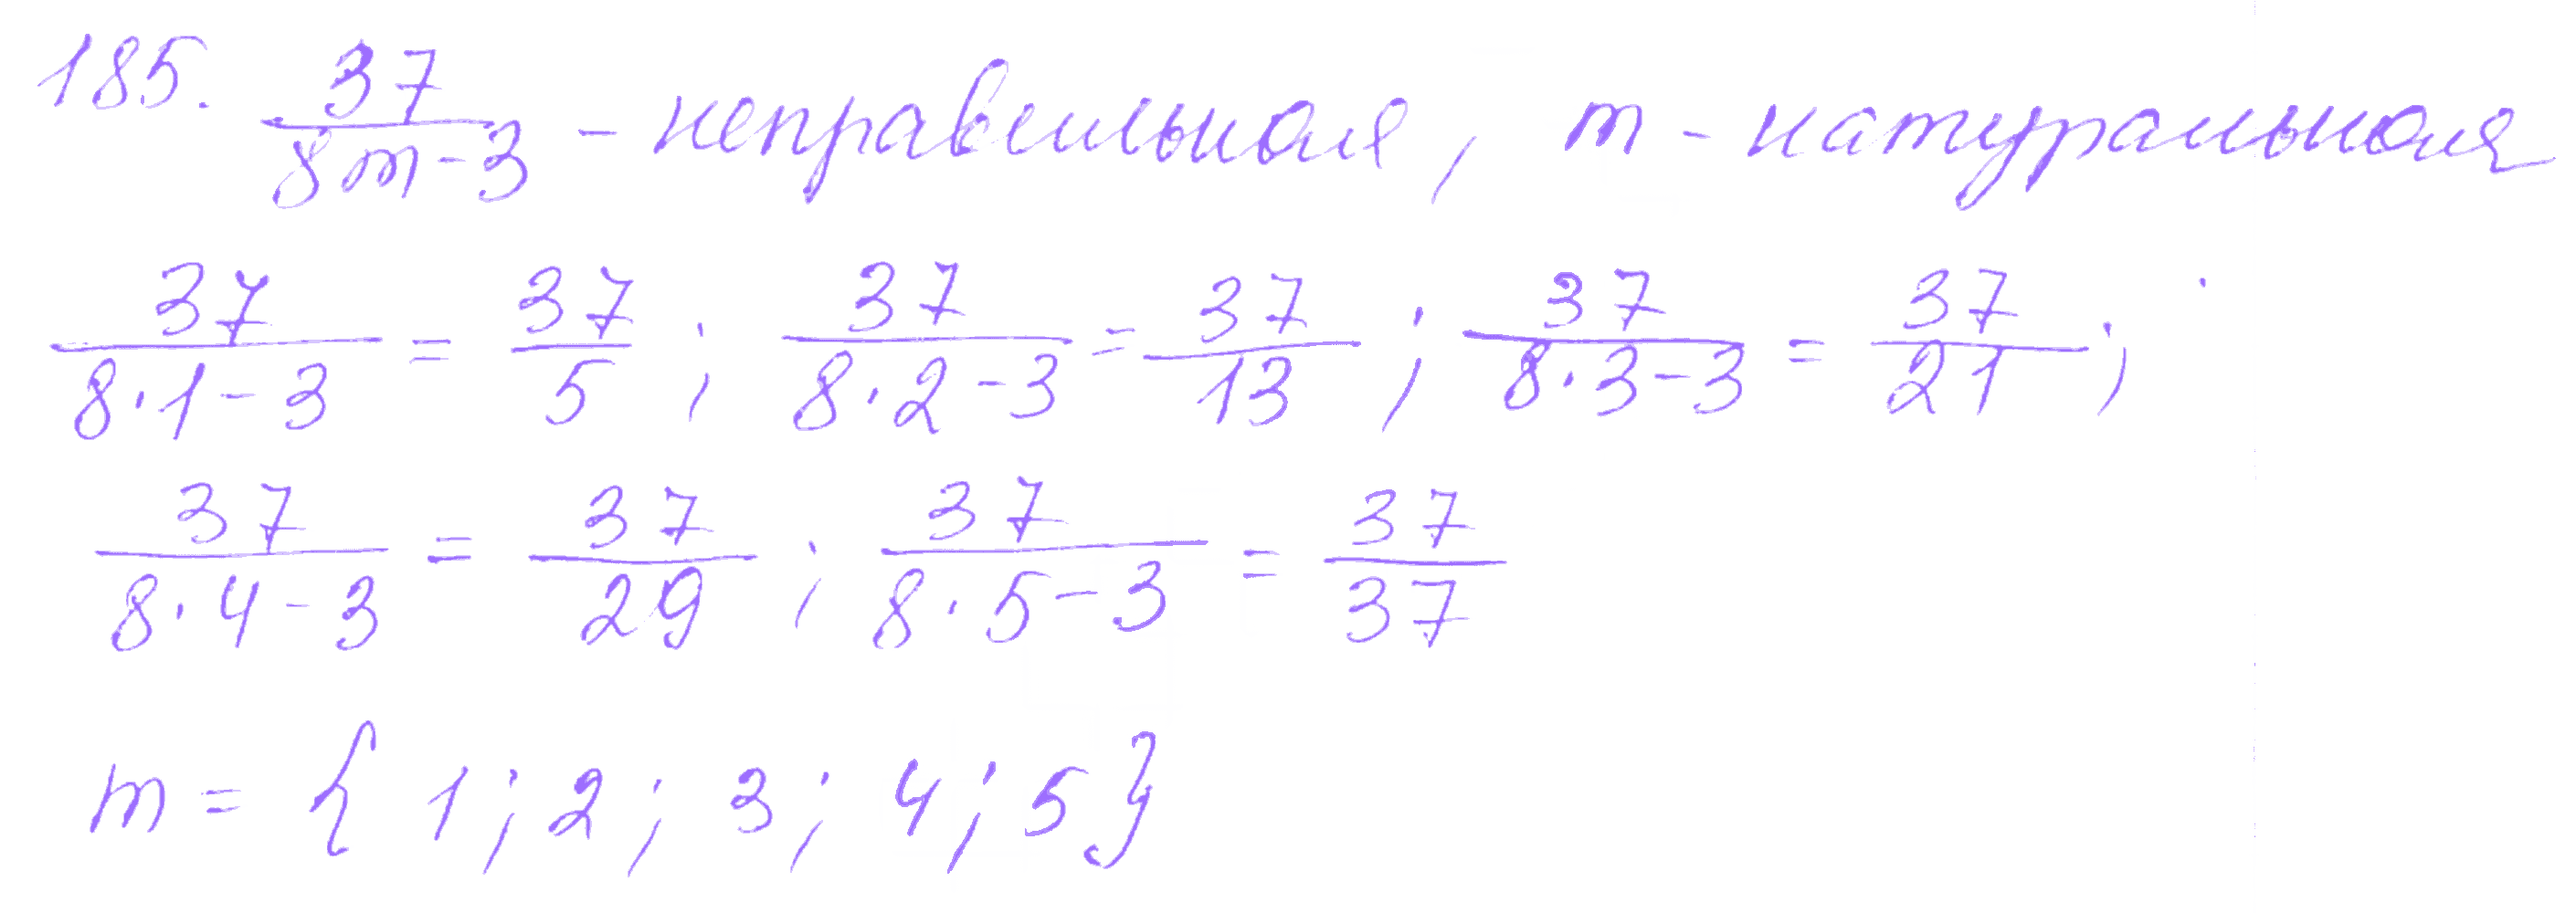 185. 37/(8m-3) - неправильная, m - натуральная
37/(8·1-3) = 37/5 ; 37/(8·2-3) = 37/13 ; 37/(8·3-3) = 37/21 ;
37/(8·4-3) = 37/29 ; 37/(8·5-3) = 37/37
m = { 1 ; 2 ; 3 ; 4 ; 5 }